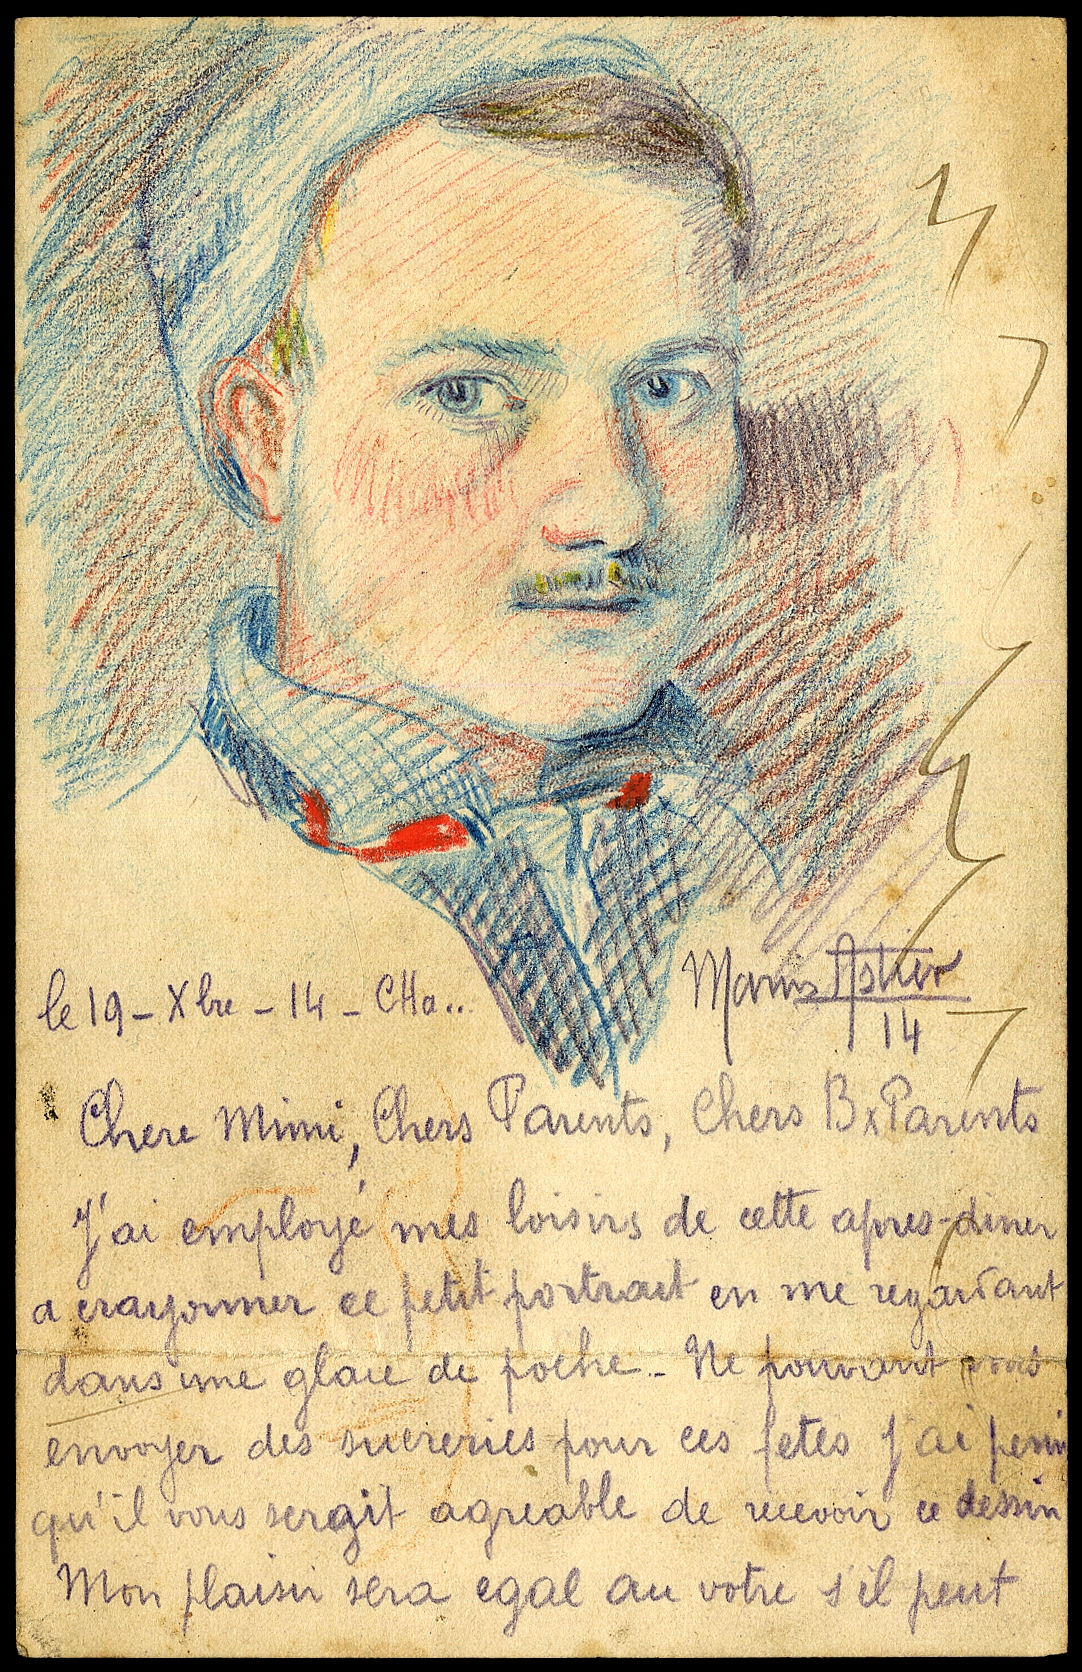 Marius Astier
14
le 19 - Xbre - 14 - CHa..
Chere Mimi, Chers Parents, Chers Bx Parents
J'ai employé mes loisirs de cette apres-diner
a crayonner ce petit portrait en me regardant
dans une glace de poche - Ne pouvant vous
envoyer des sucreries pour ces fetes j'ai pensé
qu'il vous serait agreable de recevoir ce dessin
Mon plaisir sera egal au votre s'il peut